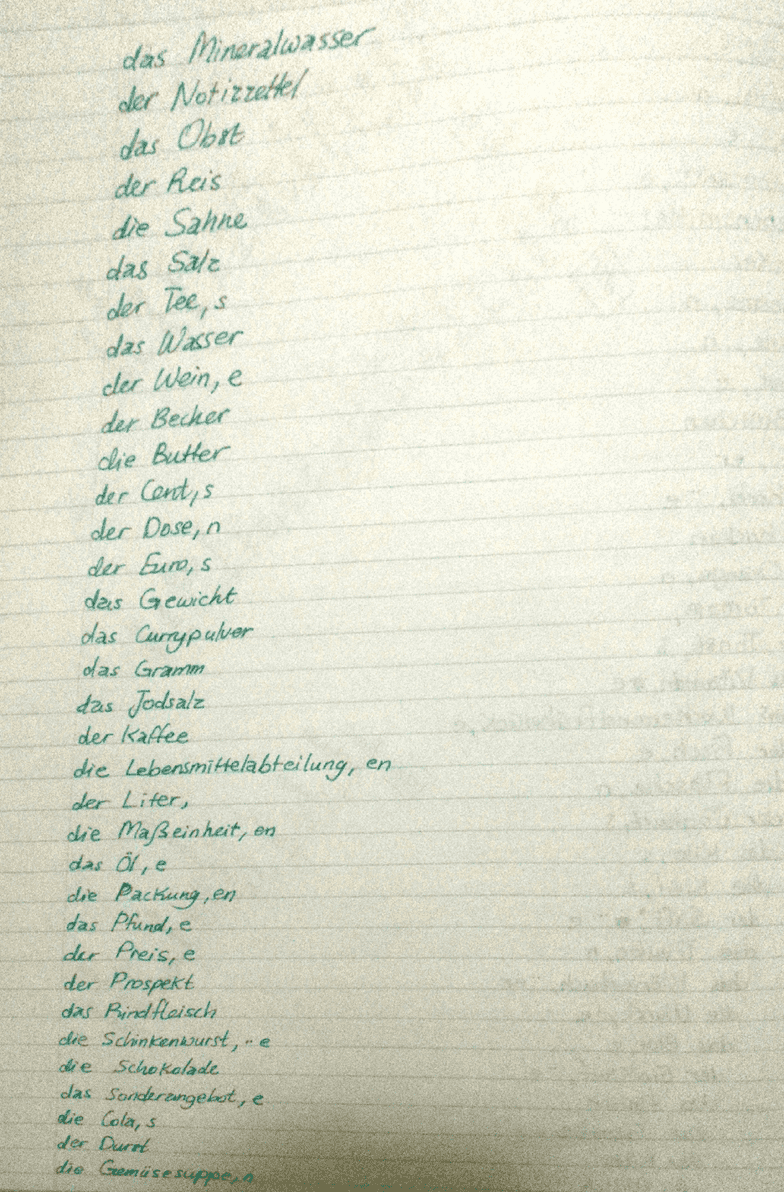 das Mineralwasser
der Notizzettel
das Obst
der Reis
die Sahne
das Salz
der Tee, s
das Wasser
der Wein, e
der Becher
die Butter
der Cent, s
der Dose, n
der Euro, s
das Gewicht
das Currypulver
das Gramm
das Jodsalz
der Kaffee
die Lebensmittelabteilung, en
der Liter,
die Maßeinheit, en
das Öl, e
die Packung, en
das Pfund, e
der Preis, e
der Prospekt
das Rindfleisch
die Schinkenwurst, ¨e
die Schokolade
das Sonderangebot, e
die Cola, s
der Durst
die Gemüsesuppe, n